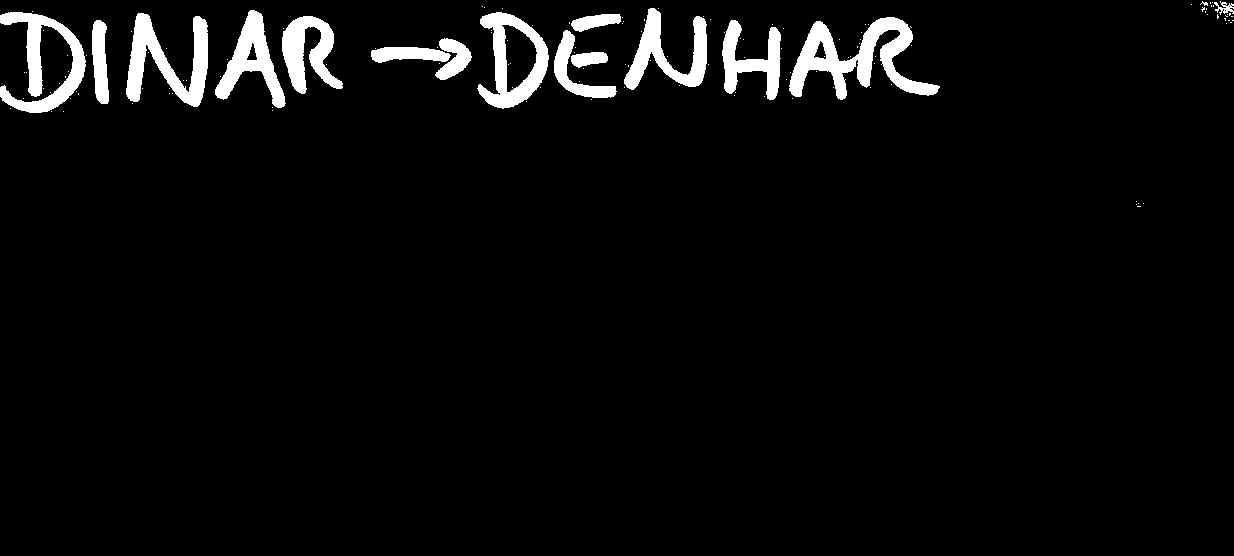 DINAR → DENHAR